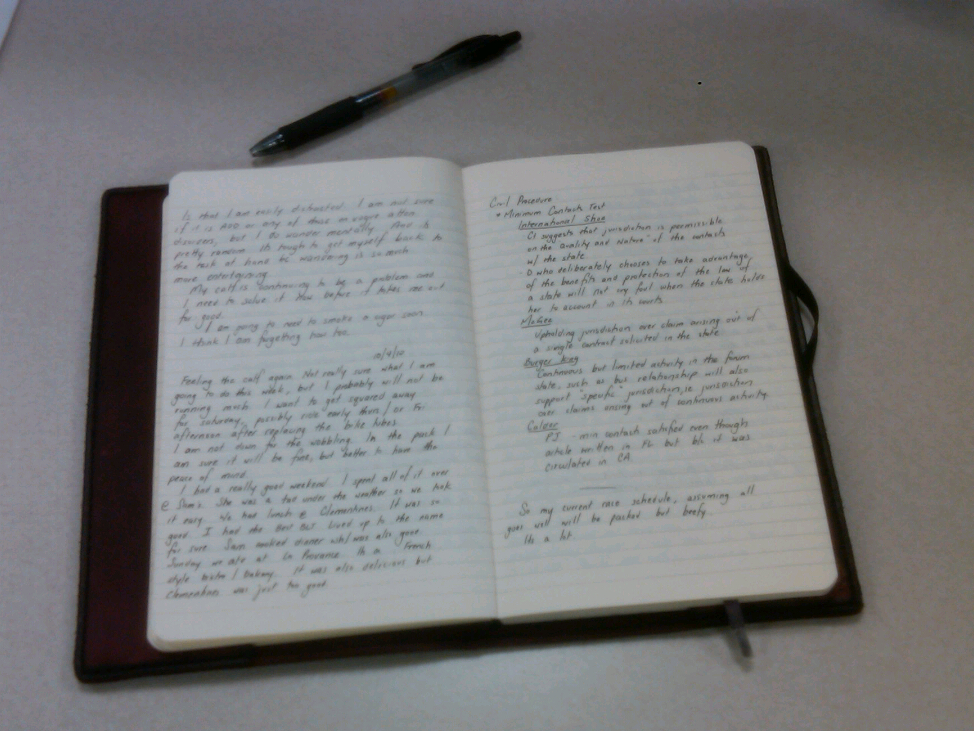 Is that I am easily distracted. I am not sure
if it is ADD or any of those in vogue atten
disorders, but I do wander mentally. And is
pretty random. Its tough to get myself back to
the task at hand bc wandering is so much
more entertaining.
My calf is continuing to be a problem and
I need to solve it now before it takes me out
for good.
I am going to need to smoke a cigar soon.
I think I am forgetting how too.
Feeling the calf again. Not really sure what I am
going to do this week, but I probably will not be
running much. I want to get squared away
for saturday, possibly ride early thurs / or Fri
afternoon after replacing the bike tubes.
I am not down for the wobbling. In the past I
am sure it will be fine, but better to have the
peace of mind.
I had a really good weekend. I spent all of it over
@ Sam's. She was a tad under the weather so we took
it easy. We had lunch @ Clementines. It was so
good. I had the Best BLT lived up to the name
for sure. Sam cooked dinner wh/ was also good.
Sunday we ate at La Provence. Its a French
style bistro / bakery. It was also delicious but
Clementines was just too good.
Civil Procedure
• Minimum Contacts Test
International Shoe
Ct suggests that jurisdiction is permissible
on the "Quality and Nature" of the contacts
w/ the state
- D who deliberately chooses to take advantage
of the benefits and protection of the law of
a state will not cry foul when the state holds
her to account in its courts
McGee
Upholding jurisdiction over claim arising out of
a single contract solicited in the state
Burger King
Continuous but limited activity in the forum
state, such as bus. relationship will also
support "specific" jurisdiction, ie jurisdiction
over claims arising out of continuous activity.
Calder
PJ - min contacts satisfied even though
article written in FL but b/c it was
circulated in CA
So my current race schedule, assuming all
goes well will be packed but beefy.
Its a lot